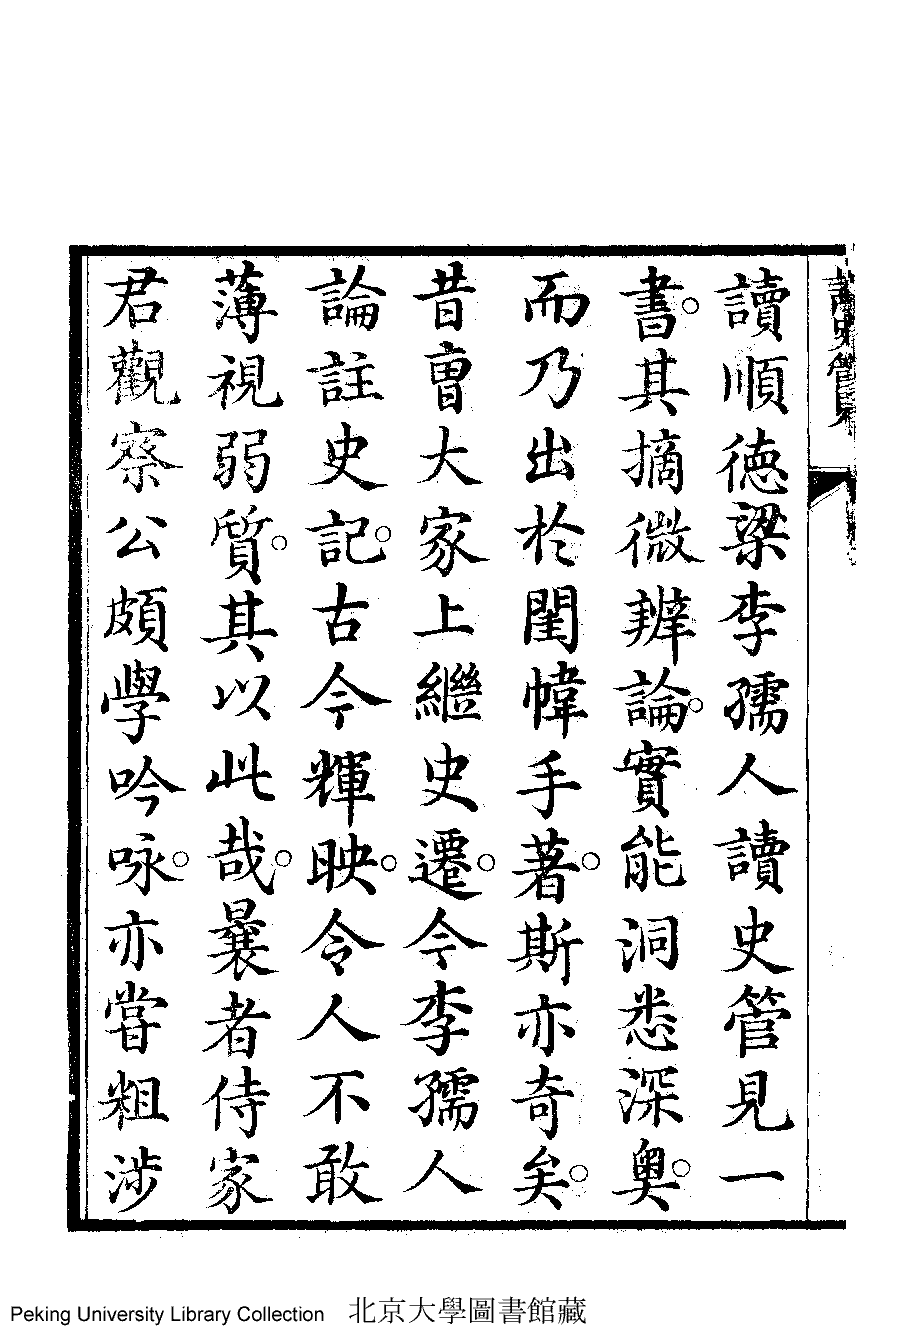 讀史管見
讀順德梁李孺人讀史管見一
書。其摘微辨論。實能洞悉深奧。
而乃出於閨幃手著。斯亦奇矣。
昔曹大家上繼史遷。今李孺人
論註史記。古今輝映。令人不敢
薄視弱質。其以此哉。曩者侍家
君觀察公頗學吟咏。亦嘗粗涉
Peking University Library Collection 北京大學圖書館藏